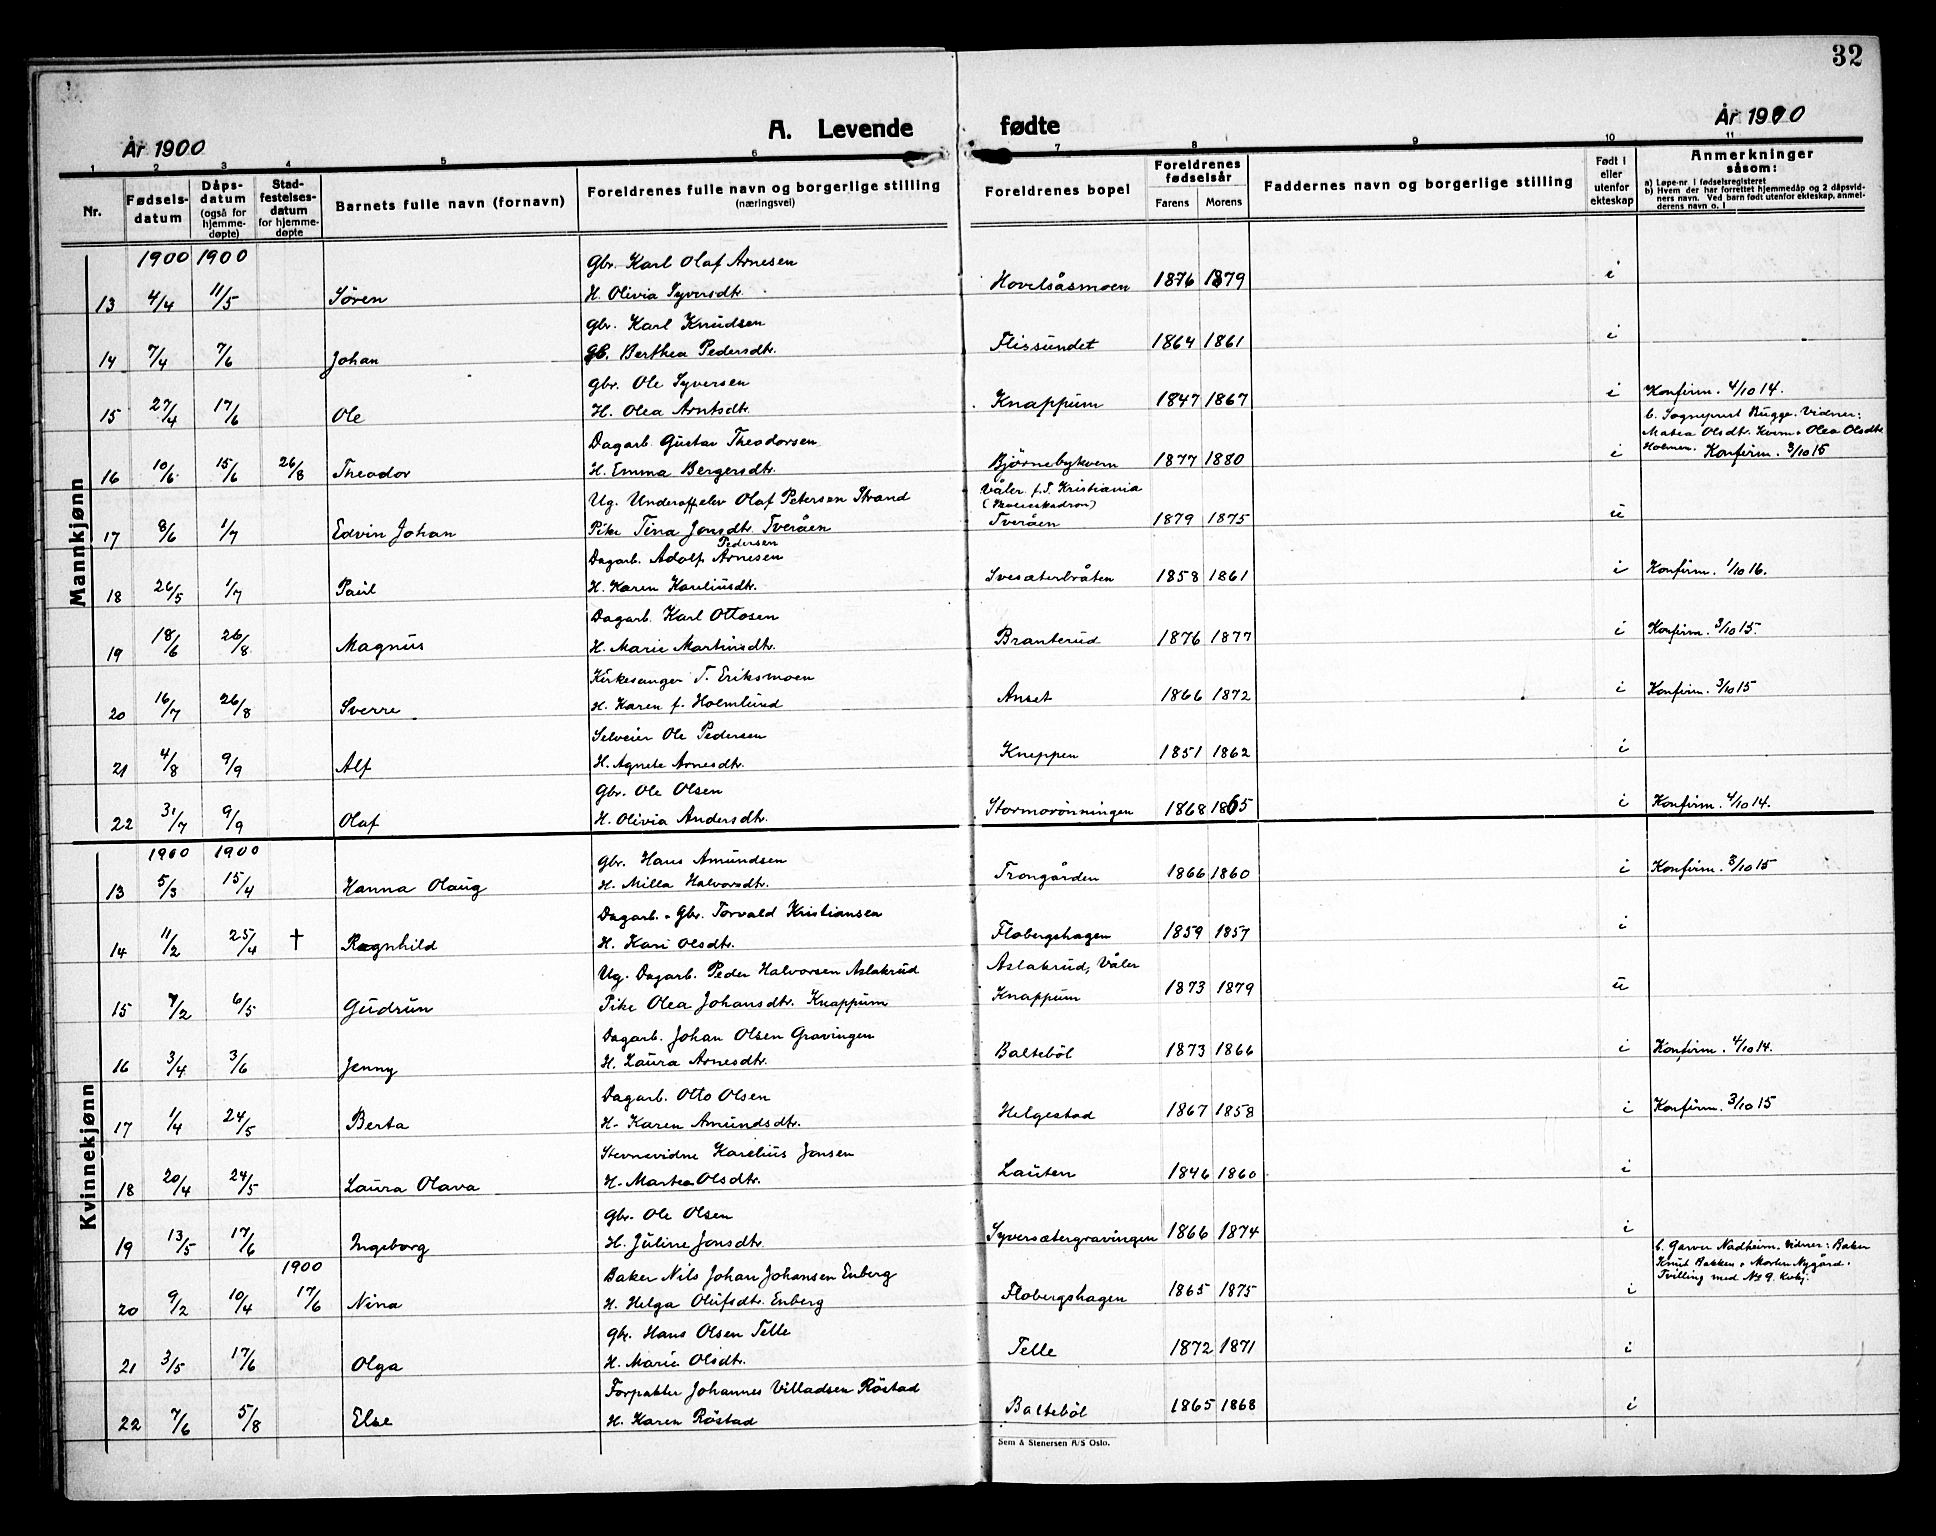 32
År 1900
A. Levende fødte
År 1900
1 2 3 4 5 6 7 8 9 10 11
Nr.
Fødsels-
datum
Dåps-
datum
(også for
hjemme-
døpte)
Stad-
festelses-
datum
for hjemme-
døpte
Barnets fulle navn (fornavn)
Foreldrenes fulle navn og borgerlige stilling
(næringsvei)
Foreldrenes bopel
Foreldrenes
fødselsår
Farens Morens
Faddernes navn og borgerlige stilling
Født i
eller
utenfor
ekteskap
Anmerkninger
såsom:
a) Løpe-nr. i fødselsregisteret
b) Hvem der har forrettet hjemmedåp og 2 dåpsvid-
ners navn. Ved barn født utenfor ekteskap, anmel-
derens navn o. l.
Mannkjønn
1900 1900
Gbr. Karl Olaf Arnesen
13 4/4 11/5 Søren H. Olivia Syversdtr. Hovelsåsmoen 1876 1879 i
Gbr. Karl Knudsen
14 7/4 7/6 Johan H. Berthea Pedersdtr. Flissundet 1864 1861 i
Gbr. Ole Syversen
15 27/4 17/6 Ole H. Olea Arntsdtr. Knappum 1847 1867 i Konfirm. 4/10 14.
b. Sogneprest Bugge. Vidner:
Matea Olsdtr. Kvern . Olea Olsdtr
Dagarb. Gustav Theodorsen
16 10/6 15/6 26/8 Theodor H. Emma Bergersdtr. Bjørnebykvern 1877 1880 i Holmen. Konfirm. 3/10 15
Ug. Underoff.elev Olaf Petersen Strand Våler f.T. Kristiania
17 8/6 1/7 Edvin Johan Pike Tina Jonsdtr. Tveråen Tveråen 1879 1875 u
Pedersen
Dagarb. Adolf Arnesen
18 26/5 1/7 Paul H. Karen Kareliusdtr. Svesæterbråten 1858 1861 i Konfirm. 1/10 16.
Dagarb. Karl Ottosen
19 18/6 26/8 Magnus H. Marie Martinsdtr. Branterud 1876 1877 i Konfirm. 3/10 15.
Kirkesanger T. Eriksmoen
20 16/7 26/8 Sverre H. Karen f. Holmlund Anset 1866 1872 i Konfirm. 3/10 15
Selveier Ole Pedersen
21 4/8 9/9 Alf H. Agnete Arnesdtr. Kneppen 1851 1862 i
Gbr. Ole Olsen
22 31/7 9/9 Olaf H. Olivia Andersdtr. Stormorønningen 1868 1865 i Konfirm. 4/10 14.
Kvinnekjønn
1900 1900
Gbr. Hans Amundsen
13 5/3 15/4 Hanna Olaug H. Milla Halvorsdtr. Trongården 1866 1860 i Konfirm. 3/10 15
Dagarb. . Gbr. Torvald Kristiansen
14 11/2 25/4 † Ragnhild H. Kari Olsdtr. Flobergshagen 1859 1857 i
Ug. Dagarb. Peder Halvorsen Aslakrud Aslakrud, Våler
15 7/2 6/5 Gudrun Pike Olea Johansdtr. Knappum Knappum 1873 1879 u
Dagarb. Johan Olsen Gravingen
16 3/4 3/6 Jenny H. Laura Arnesdtr. Baltebøl 1873 1866 i Konfirm. 4/10 14.
Dagarb. Otto Olsen
17 1/4 24/5 Berta H. Karen Amundsdtr. Helgestad 1867 1858 i Konfirm. 3/10 15
Stevnevidne Karelius Jonsen
18 20/4 24/5 Laura Olava H. Martea Olsdtr. Lauten 1846 1860 i
Gbr. Ole Olsen
19 13/5 17/6 Ingeborg H. Juline Jonsdtr. Syversætergravingen 1866 1874 i
1900
b. Garver Nadheim. Vidner: Baker
Knut Bakken . Morten Nygård.
Tvilling med No 9. kvkj.
Baker Nils Johan Johansen Enberg
20 9/2 10/4 17/6 Nina H. Helga Olufsdtr. Enberg Flobergshagen 1865 1875 i
Gbr. Hans Olsen Telle
21 3/5 17/6 Olga H. Marie Olsdtr. Telle 1872 1871 i
Forpakter Johannes Villadsen Røstad
22 7/6 5/8 Else H. Karen Røstad Baltebøl 1865 1868 i
Sem & Stenersen A/S Oslo.